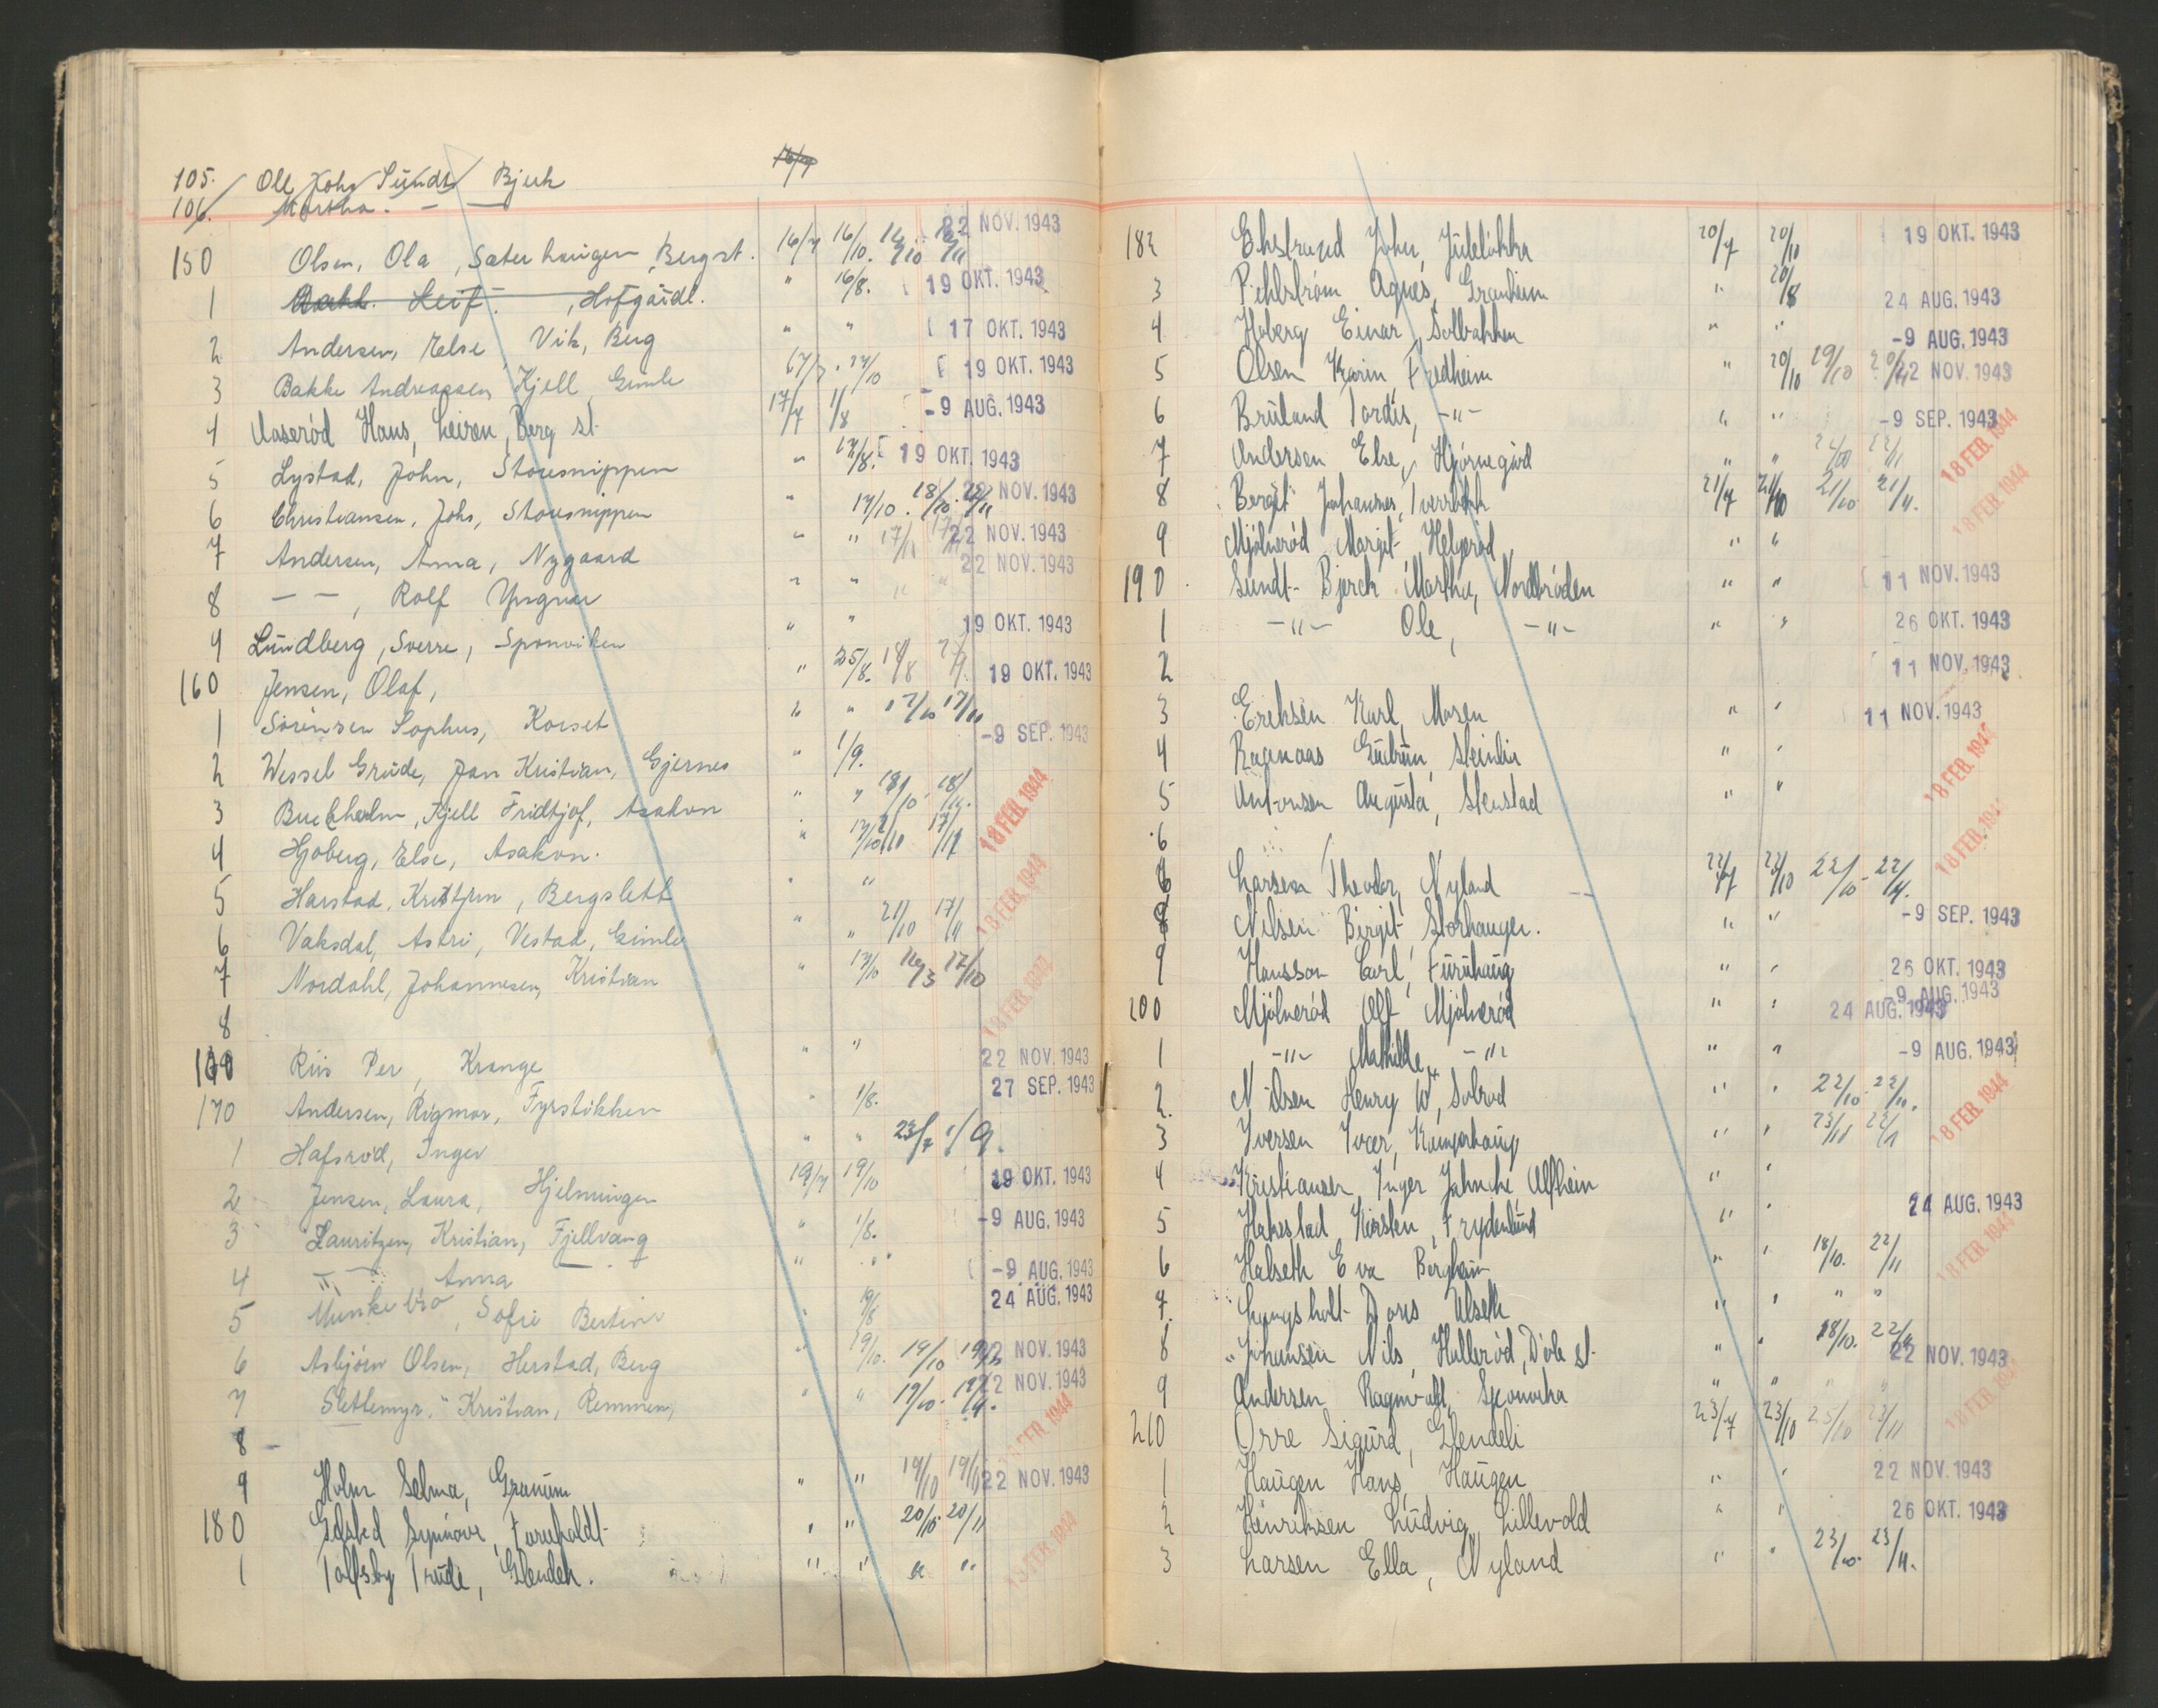 105. Ole Johs Sundt Bjerk 16/7
106. Martha. — —
150 Olsen, Ola, Sæterhaugen, Bergst. 16/7 16/10. 22 NOV. 1943
1 Leif. , Hofgårdl. " 16/8. 19 OKT. 1943
2 Andersen, Else Vik, Berg " " 17 OKT. 1943
3 Bakke Andreassen, Kjell Gimle 19 OKT. 1943
4 Aaserød Hans, Leiren, Berg st. 17/7 1/8 -9 AUG. 1943
5 Lystad, John, Storesnippen " 17/8. 19 OKT. 1943
6 Christiansen, Johs, Storesnippen " 17/10. 18/10. 22 NOV. 1943
7 Andersen, Anna, Nygaard " " 22 NOV. 1943
8 — —, Rolf " " 22 NOV. 1943
9 Lundberg, Sverre, Sponviken " " 19 OKT. 1943
160 Jensen, Olaf, " 25/8. 18/8 19 OKT. 1943
1 Sörensen Sophus, Korset " " 17/10 17/11
2 Wessel Grüde, Jan Kristian, Gjernes " 1/9. -9 SEP. 1943
3 Buckholm, Kjell Fridtjof, Asakon " " 18/10 - 18/11. 18 FEB. 1944
4 Hjoberg, Else, Asakon. " 17/10 17/11
5 Harstad, Kristian, Bergslett " " 18 FEB. 1944
6 Vaksdal, Astri, Vestad, Gimle " " 21/10 17/11
7 Nordahl, Johannesen, Kristian " 17/10 17/10 18 FEB. 1944
8
Riis Per, Krange " " 22 NOV. 1943
170 Andersen, Rigmor, Fyrstikken " 1/8. 27 SEP. 1943
1 Hafsröd, Inger " " 1/9.
2 Jensen, Laura, Hjelmungen 19/7 19/10 19 OKT. 1943
3 Lauritzen, Kristian, Fjellvang " 1/8. -9 AUG. 1943
4 — " — Anna " " -9 AUG. 1943
5 Munkebro, Sofie Bertine " 19/8 24 AUG. 1943
6 Asbjörn Olsen, Herstad, Berg " 19/10. 19/10 22 NOV. 1943
7 Slettemyr, Kristian, Remmen, " " 19/10. 22 NOV. 1943
8 - FEB. 1944
9 Holm Selma, Granum " " 19/10 19/11 22 NOV. 1943
180 Edsled Synnöve, Furuholdt " " 20/10 20/11
1 Tolfsby Trude, Glendeli. " " " " FEB. 1944
182 Ekstrand John, Jüteløkka 20/7 20/10 19 OKT. 1943
3 Pihlström Agnes, Granheim " 20/8 24 AUG. 1943
4 Hoberg Einar, Solbakken " " -9 AUG. 1943
5 Olsen Karin, Fredheim " 20/10 19/10 22 NOV. 1943
6 Bruland Tordis, -"- " " -9 SEP. 1943
7 Andersen Else, Hjørnegård " " 22/11 18 FEB. 1944
8 Bergit Johannes, 21/7 21/10 21/10 21/11. 18 FEB. 1944
9 Mjölneröd Margit Helgeröd " "
190 Sundt-Bjerck Martha, Nordbröden " " 11 NOV. 1943
1 -"- Ole, -"- " " 26 OKT. 1943
2 11 NOV. 1943
3 Eriksen Karl, Mosen " " 11 NOV. 1943
4 Ragnaas Gudrun, Steinlia " " 18 FEB. 194
5 Antonsen Augusta, Stenstad " "
6 18 FEB. 194
Larsen Theodor, Nyland 22/7 22/10 22/10 - 22/11.
8 Nilsen Birgit, Storhaugen. " " -9 SEP. 1943
9 Hansson Carl, Furuhaug " " 26 OKT. 1943
-9 AUG. 1943
200 Mjölneröd Olf Mjölneröd " " 24 AUG. 1943
1 -"- Mathilde, -"- " " -9 AUG. 1943
2. Nilsen Henry W, Solrod " " 22/10. 22/11. 18 FEB. 1944
3 Iversen Ivar, Kamperhaug " "
4 Kristiansen Inger Jahnche, Alfheim " "
5 Hakestad Kirsten, Frydenlund " " 24 AUG. 1943
6 Halseth Eva Bergheim " " 18/10. 22/11 18 FEB. 194
7. Lungsholt Doris Ulseth " " " "
8 Johansen Nils, Hulleröd, Dole st. " " 18/10. 22/11 22 NOV. 1943
9 Andersen Ragnvald, Sponvika " " 18 FEB. 194
210 Orre Sigurd, Glendeli 23/7 23/10 23/11
1 Haugen Hans, Haugen " " 22 NOV. 1943
2 Henriksen Ludvig, Lillevold " " 26 OKT. 1943
3 Larsen Ella, Nyland " " 23/10. 23/11.